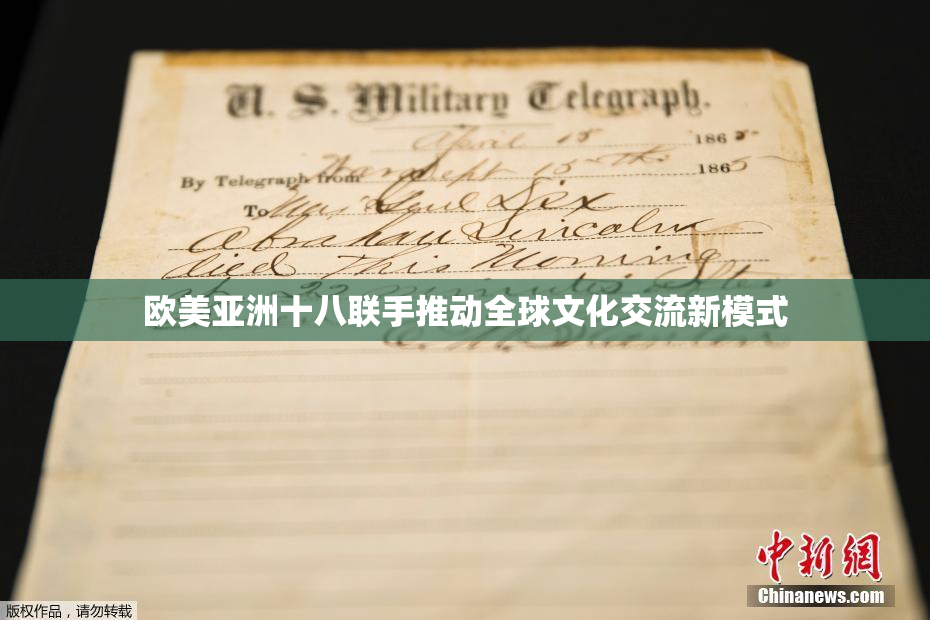 U. S. Military Telegraph.
April 15 1865
By Telegraph from War Dept 15th 1865
To Maj Genl Dix
Abraham Lincoln
died This Morning
at 22 minutes after
欧美亚洲十八联手推动全球文化交流新模式
E. M. Stanton
中新网
Chinanews.com
版权作品，请勿转载